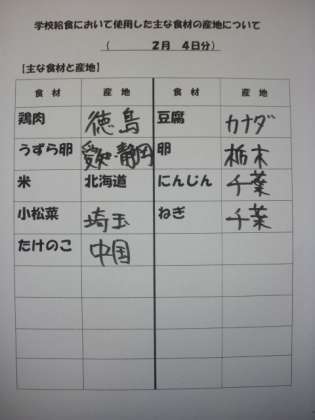 学校給食において使用した主な食材の産地について
（　　　２月　４日分）
【主な食材と産地】
食　材　産　地　食　材　産　地
鶏肉　徳島　豆腐　カナダ
うずら卵　愛知・静岡　卵　栃木
米　北海道　にんじん　千葉
小松菜　埼玉　ねぎ　千葉
たけのこ　中国